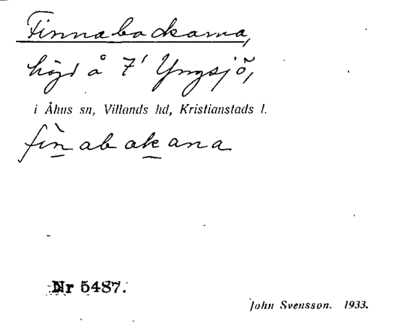 Finnabackarna,
höjd å 7¹ Yngsjö,
i Åhus sn, Villands hd, Kristianstads l.
fìnabakana
Nr 5487.
John Svensson. 1933.